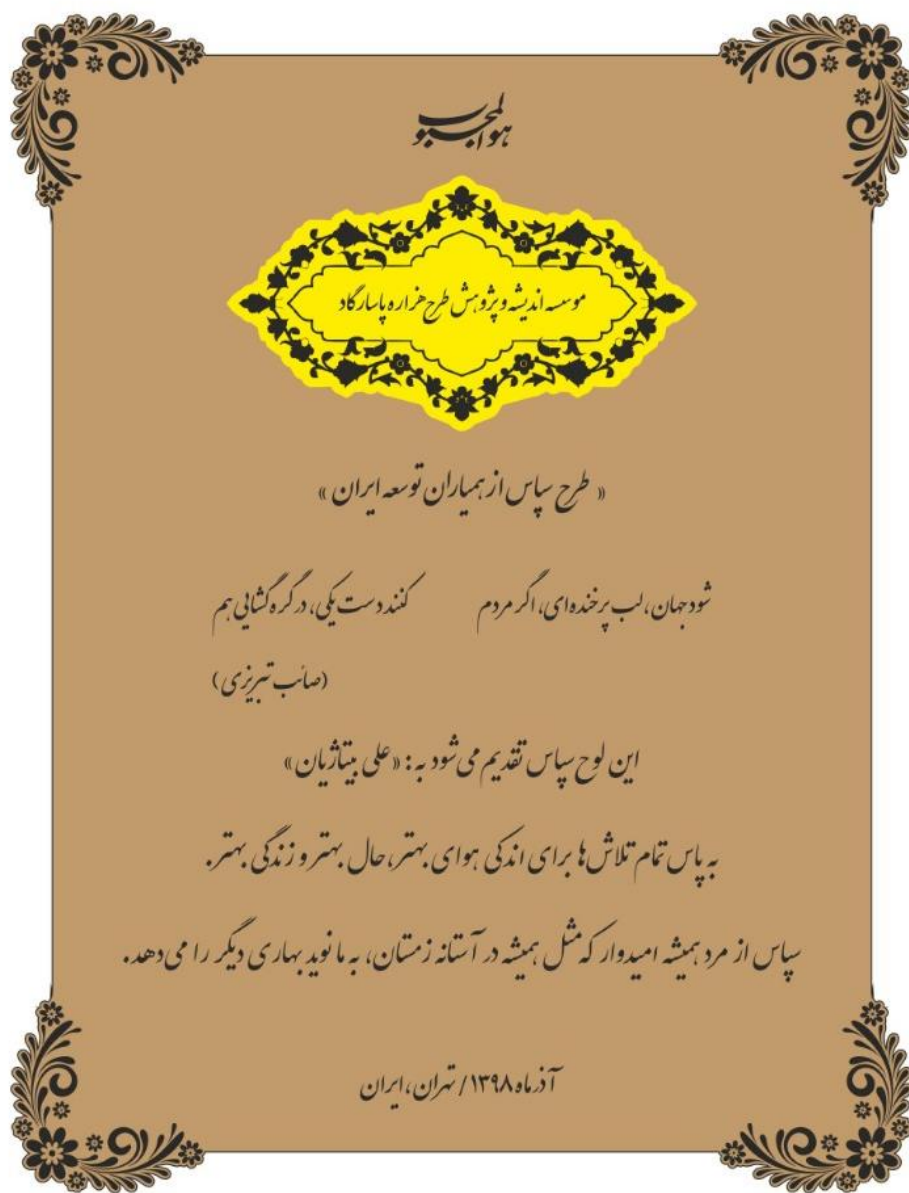 هوالمحبوب
موسسه اندیشه و پژوهش طرح هزاره پاسارگاد
« طرح سپاس از همیاران توسعه ایران »
شود جهان، لب پرخنده‌ای، اگر مردم کنند دست یکی، در گره گشایی هم
(صائب تبریزی)
این لوح سپاس تقدیم می‌شود به: «علی بیتاژیان»
به پاس تمام تلاش‌ها برای اندکی هوای بهتر، حال بهتر و زندگی بهتر.
سپاس از مرد همیشه امیدوار که مثل همیشه در آستانه زمستان، به ما نوید بهاری دیگر را می‌دهد.
آذر ماه ۱۳۹۸ / تهران، ایران